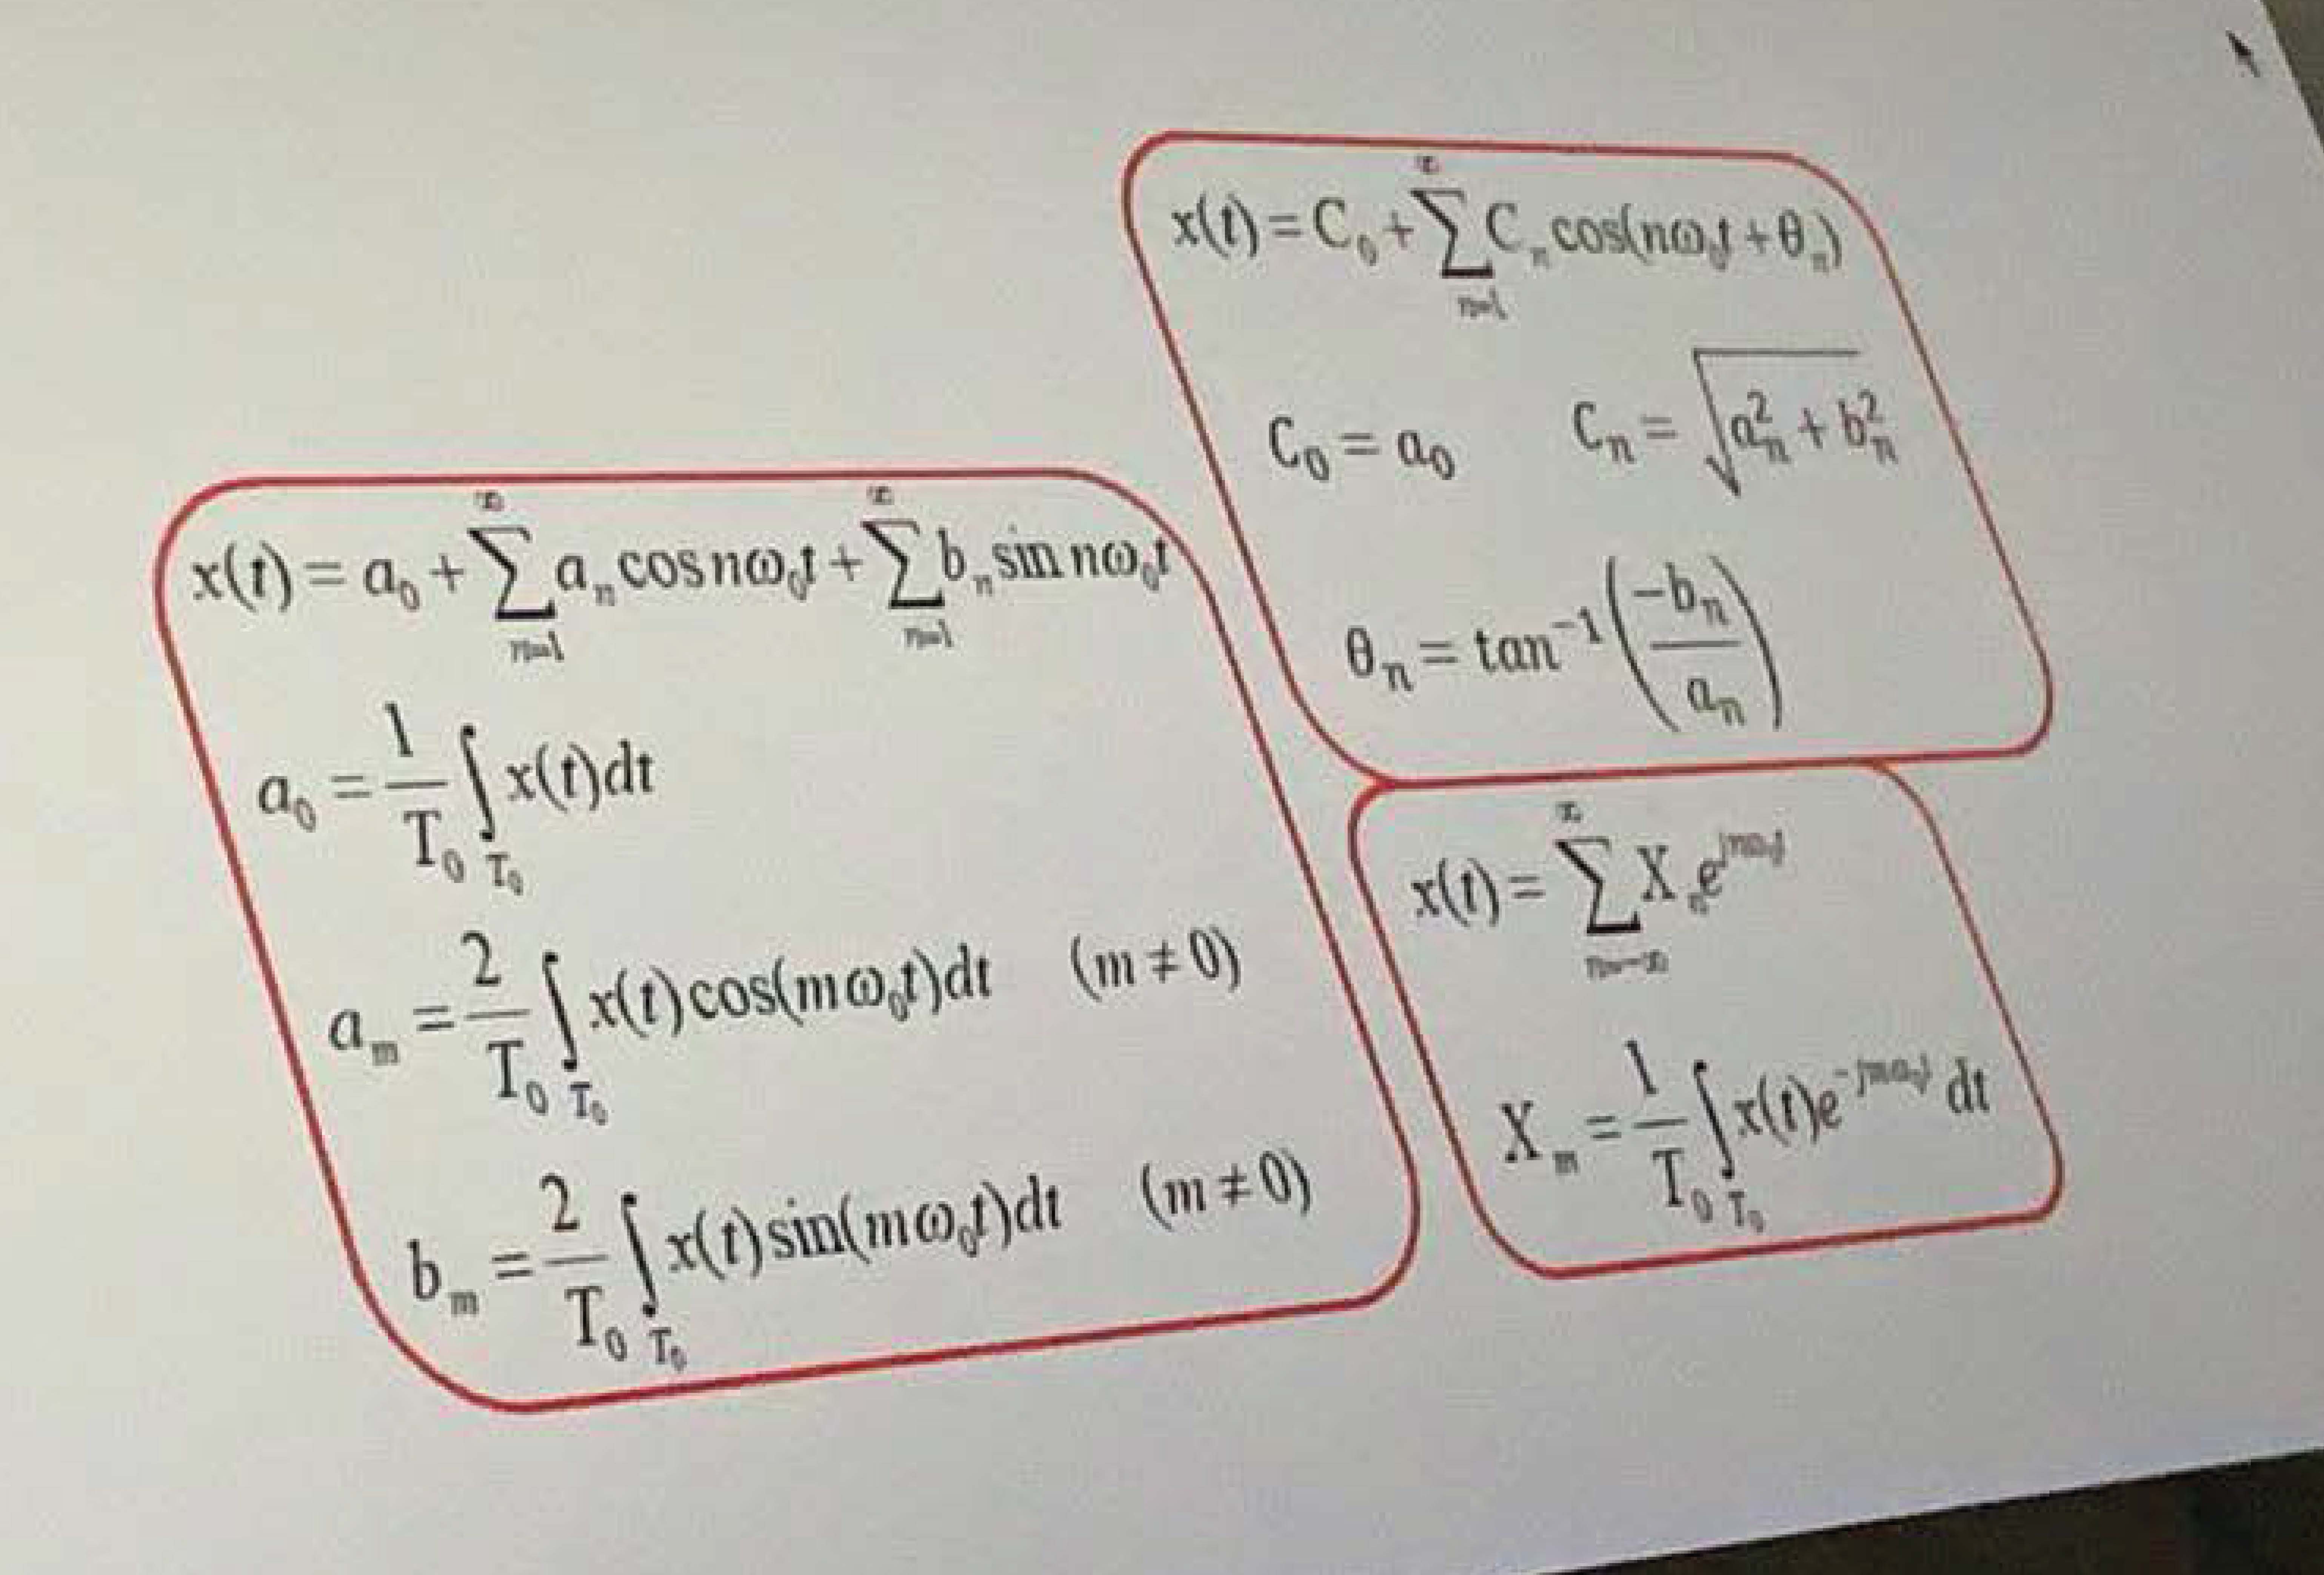 x(t) = C₀ + ∑_{n=1}^{∞} Cₙ cos(nω₀t + θₙ)
C₀ = a₀    Cₙ = √(aₙ² + bₙ²)
θₙ = tan⁻¹(−bₙ / aₙ)
x(t) = a₀ + ∑_{n=1}^{∞} aₙ cos nω₀t + ∑_{n=1}^{∞} bₙ sin nω₀t
a₀ = 1/T₀ ∫_{T₀} x(t)dt
aₘ = 2/T₀ ∫_{T₀} x(t)cos(mω₀t)dt    (m ≠ 0)
bₘ = 2/T₀ ∫_{T₀} x(t)sin(mω₀t)dt    (m ≠ 0)
x(t) = ∑_{n=−∞}^{∞} Xₙ e^{jnω₀t}
Xₘ = 1/T₀ ∫_{T₀} x(t)e^{−jmω₀t} dt